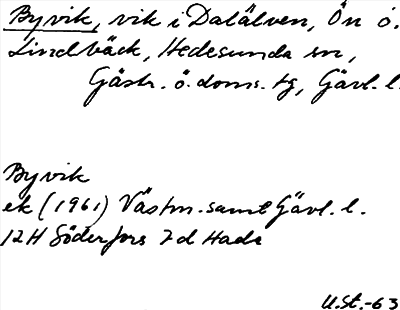 Byvik, vik i Dalälven, Ön o.
Lindbäck, Hedesunda sn,
Gästr. ö. doms. tg, Gävl. l.
Byvik
ek (1961) Västm. samt Gävl. l.
12H Söderfors 7d Hade
U.St.-63